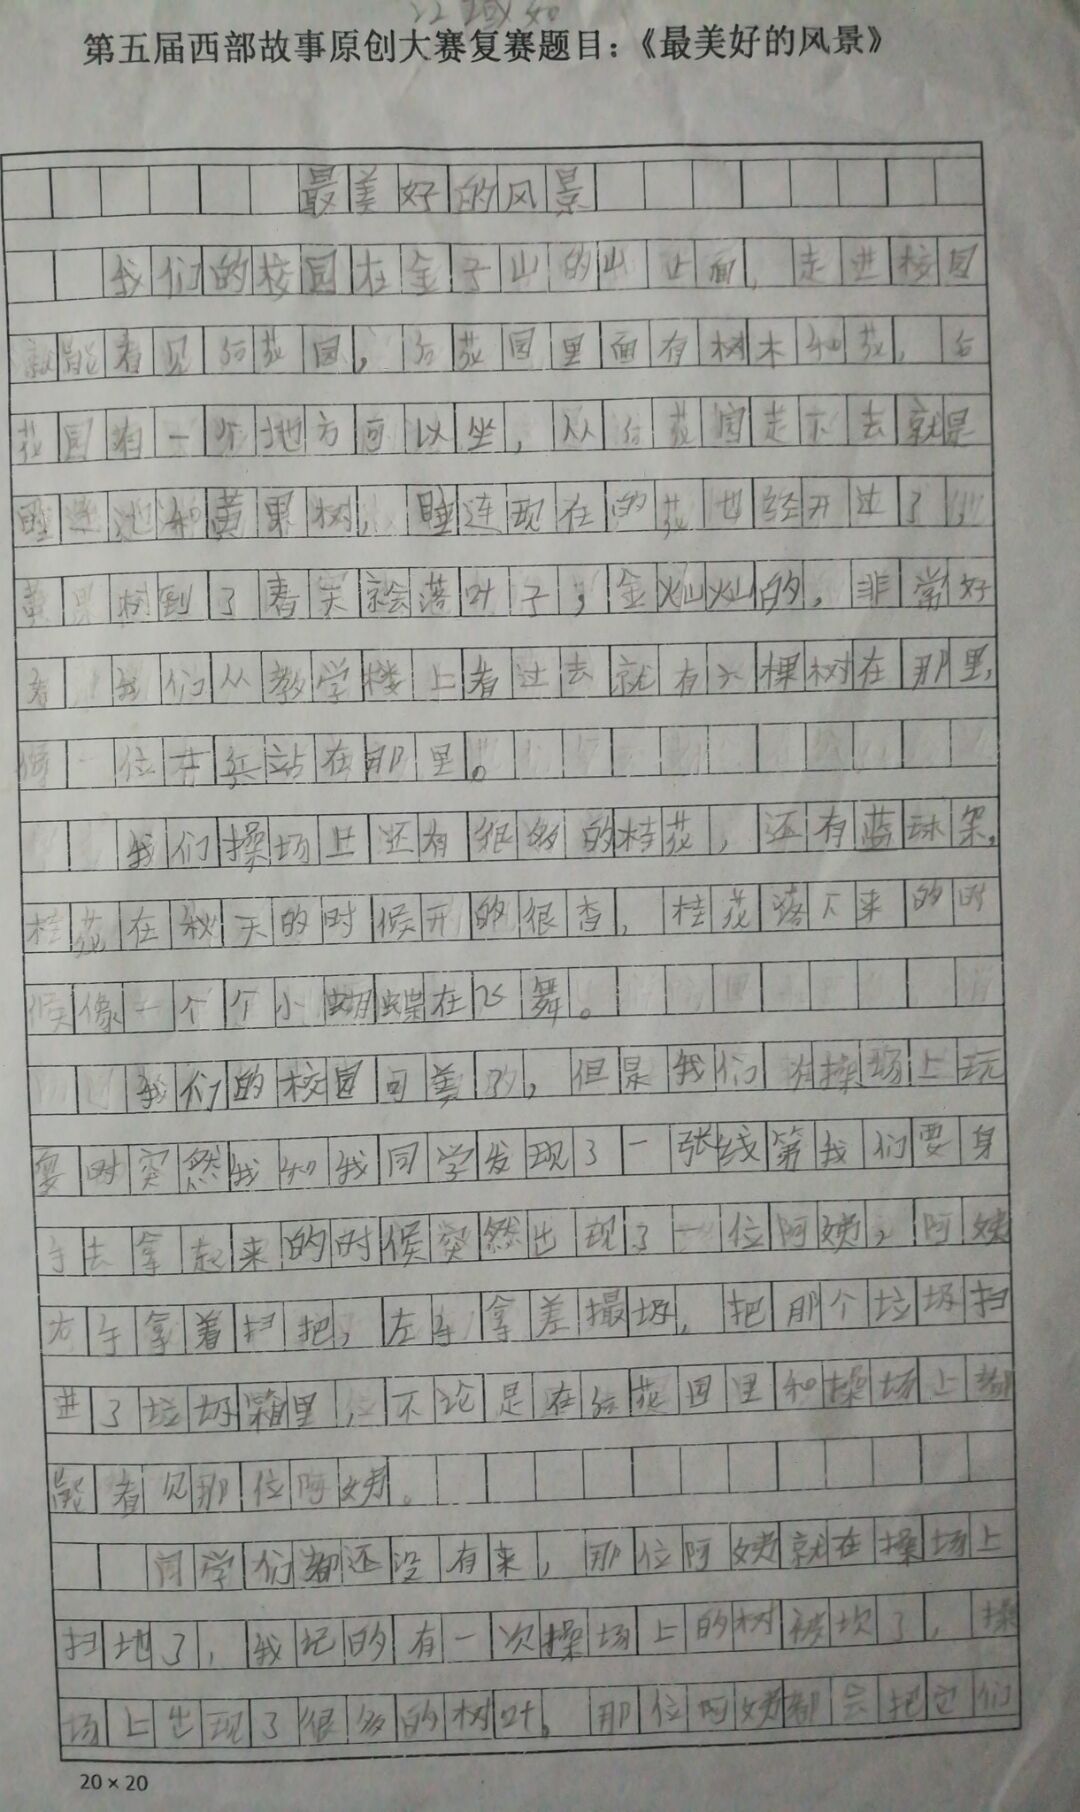 第五届西部故事原创大赛复赛题目：《最美好的风景》
最美好的风景
我们的校园在金子山的山上面，走进校园
就能看见后花园，后花园里面有树木和花，后
花园有一个地方可以坐，从后花园走下去就是
睡连池和黄果树，睡连现在的花也经开过了，
黄果树到了春天就会落叶子，金灿灿的，非常好
看，我们从教学楼上看过去就有大棵树在那里，
像一位士兵站在那里。
我们操场上还有很多的桂花，还有蓝球架。
桂花在秋天的时候开的很香，桂花落下来的时
候像一个个小蝴蝶在飞舞。
我们的校园可美了，但是我们有操场上玩
耍时突然我和我同学发现了一张线第我们要身
手去拿起来的时候突然出现了一位阿姨，阿姨
右手拿着扫把，左手拿差撮场，把那个垃场扫
进了垃圾箱里，不论是在后花园里和操场上都
能看见那位阿姨。
同学们都还没有来，那位阿姨就在操场上
扫地了，我记的有一次操场上的树被坎了，操
场上出现了很多的树叶。那位阿姨都会把它们
20×20